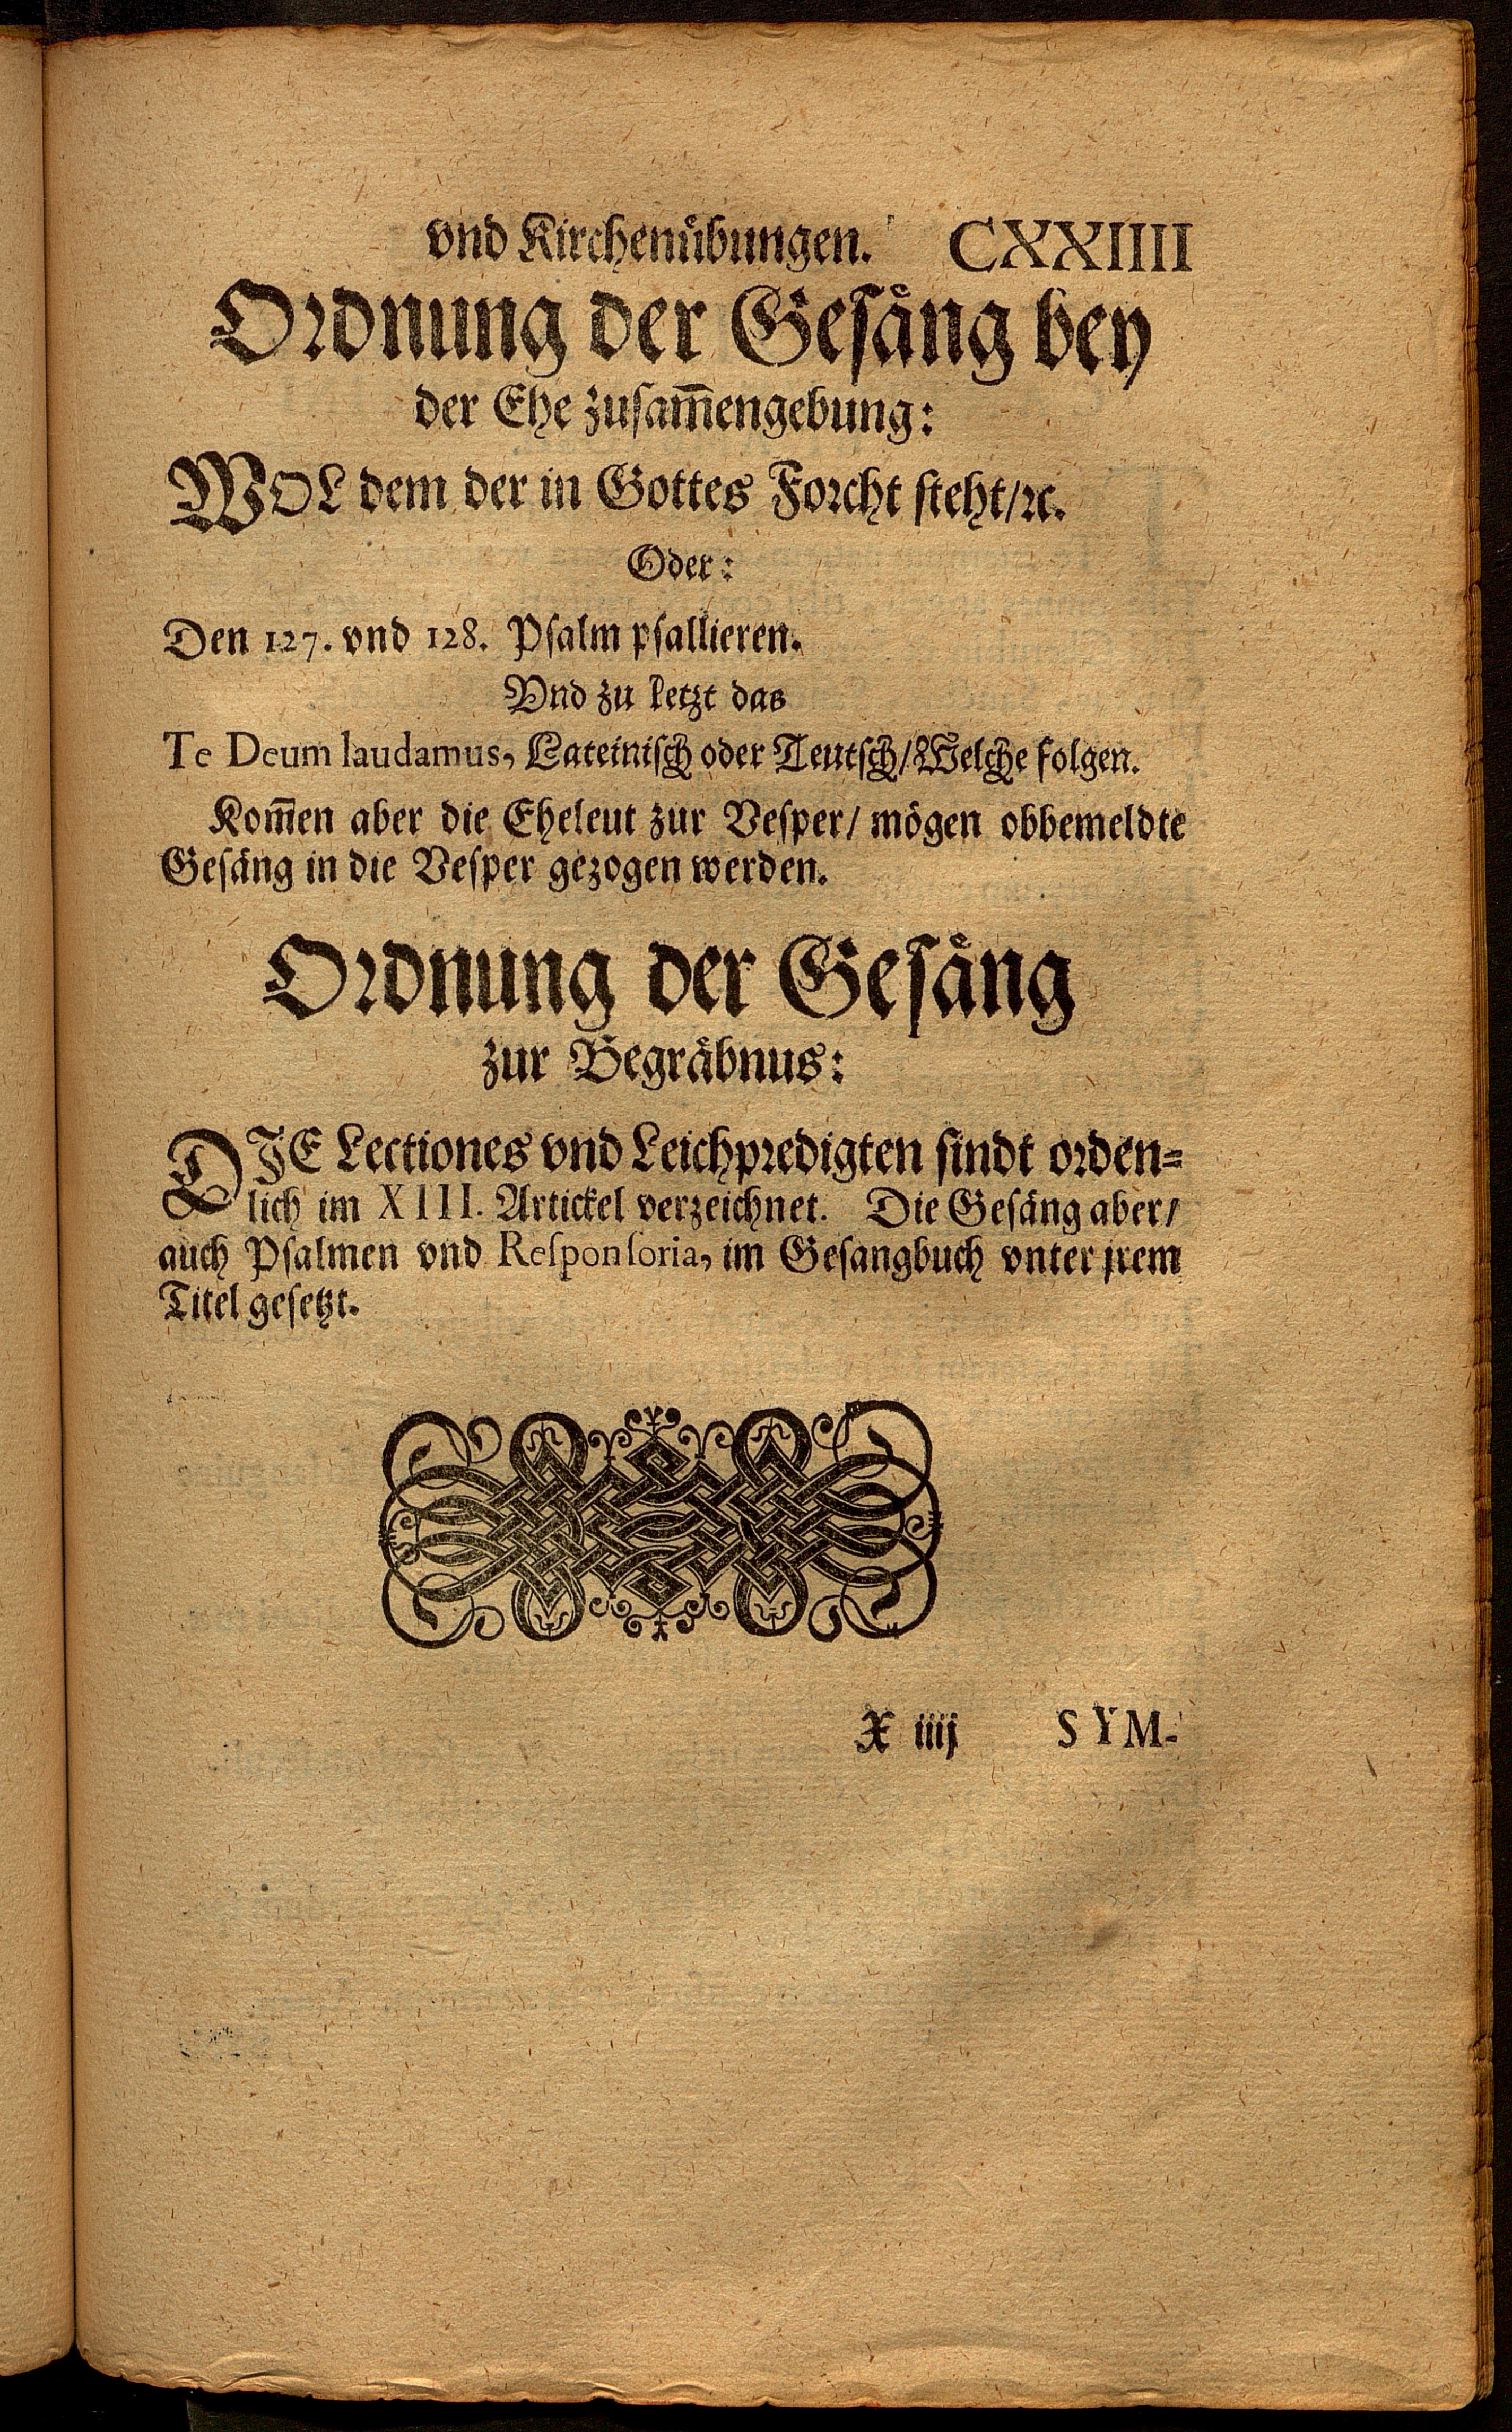 vnd Kirchenuͤbungen. CXXIIII
Ordnung der Geſaͤng bey
der Ehe zuſam̅engebung:
WOL dem der in Gottes Forcht ſteht/ꝛc.
Oder:
Den 127. vnd 128. Pſalm pſallieren.
Vnd zu letzt das
Te Deum laudamus, Lateiniſch oder Teutſch/Welche folgen.
Kom̅en aber die Eheleut zur Veſper/ moͤgen obbemeldte
Geſaͤng in die Veſper gezogen werden.
Ordnung der Geſaͤng
zur Begraͤbnus:
DIE Lectiones vnd Leichpredigten ſindt orden-
lich im XIII. Artickel verzeichnet. Die Geſaͤng aber/
auch Pſalmen vnd Reſponſoria, im Geſangbuch vnter jrem
Titel geſetzt.
X iiij SYM-